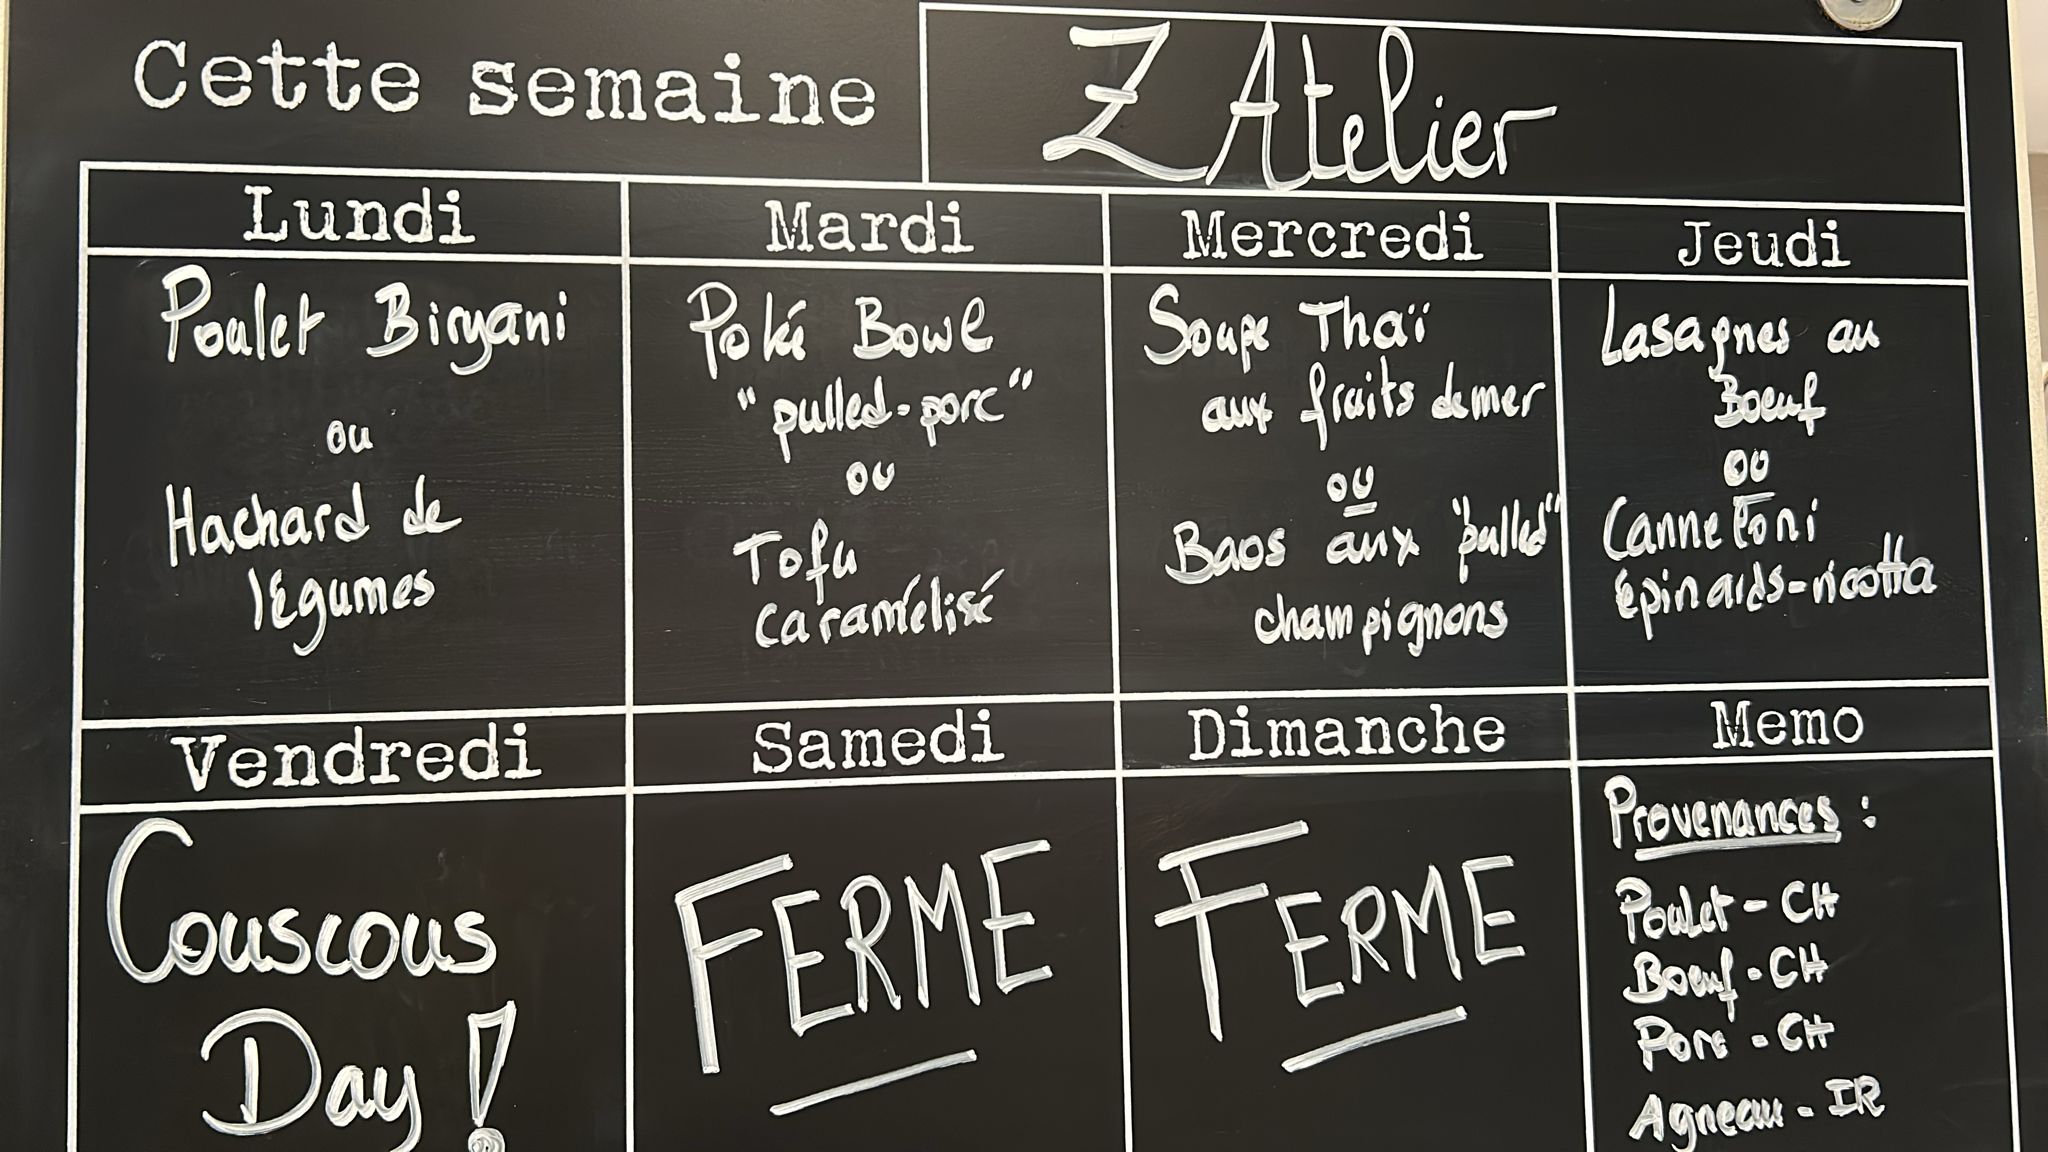 Cette semaine
Z Atelier
Lundi
Poulet Biryani
ou
Hachard de
légumes
Mardi
Poké Bowl
"pulled-porc"
ou
Tofu
caramélisé
Mercredi
Soupe Thaï
aux fruits de mer
ou
Baos aux "pulled"
champignons
Jeudi
Lasagnes au
Boeuf
ou
Cannelloni
épinards-ricotta
Vendredi
Couscous
Day !
Samedi
FERME
Dimanche
FERME
Memo
Provenances :
Poulet - CH
Boeuf - CH
Porc - CH
Agneau - IR